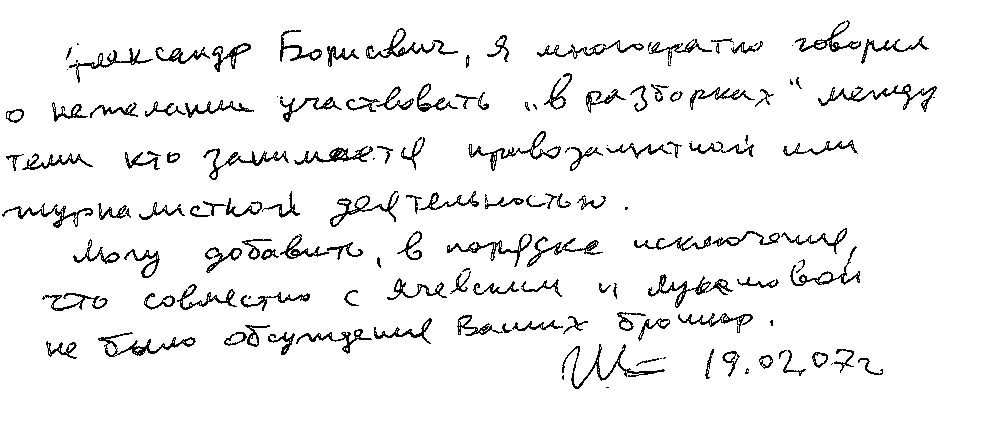 Александр Борисович, я многократно говорил
о нежелании участвовать "в разборках" между
теми кто занимается правозащитной или
журналисткой деятельностью.
Могу добавить, в порядке исключения,
что совместно с Ячевским и
не было обсуждения Ваших брошюр.
19.02.07г